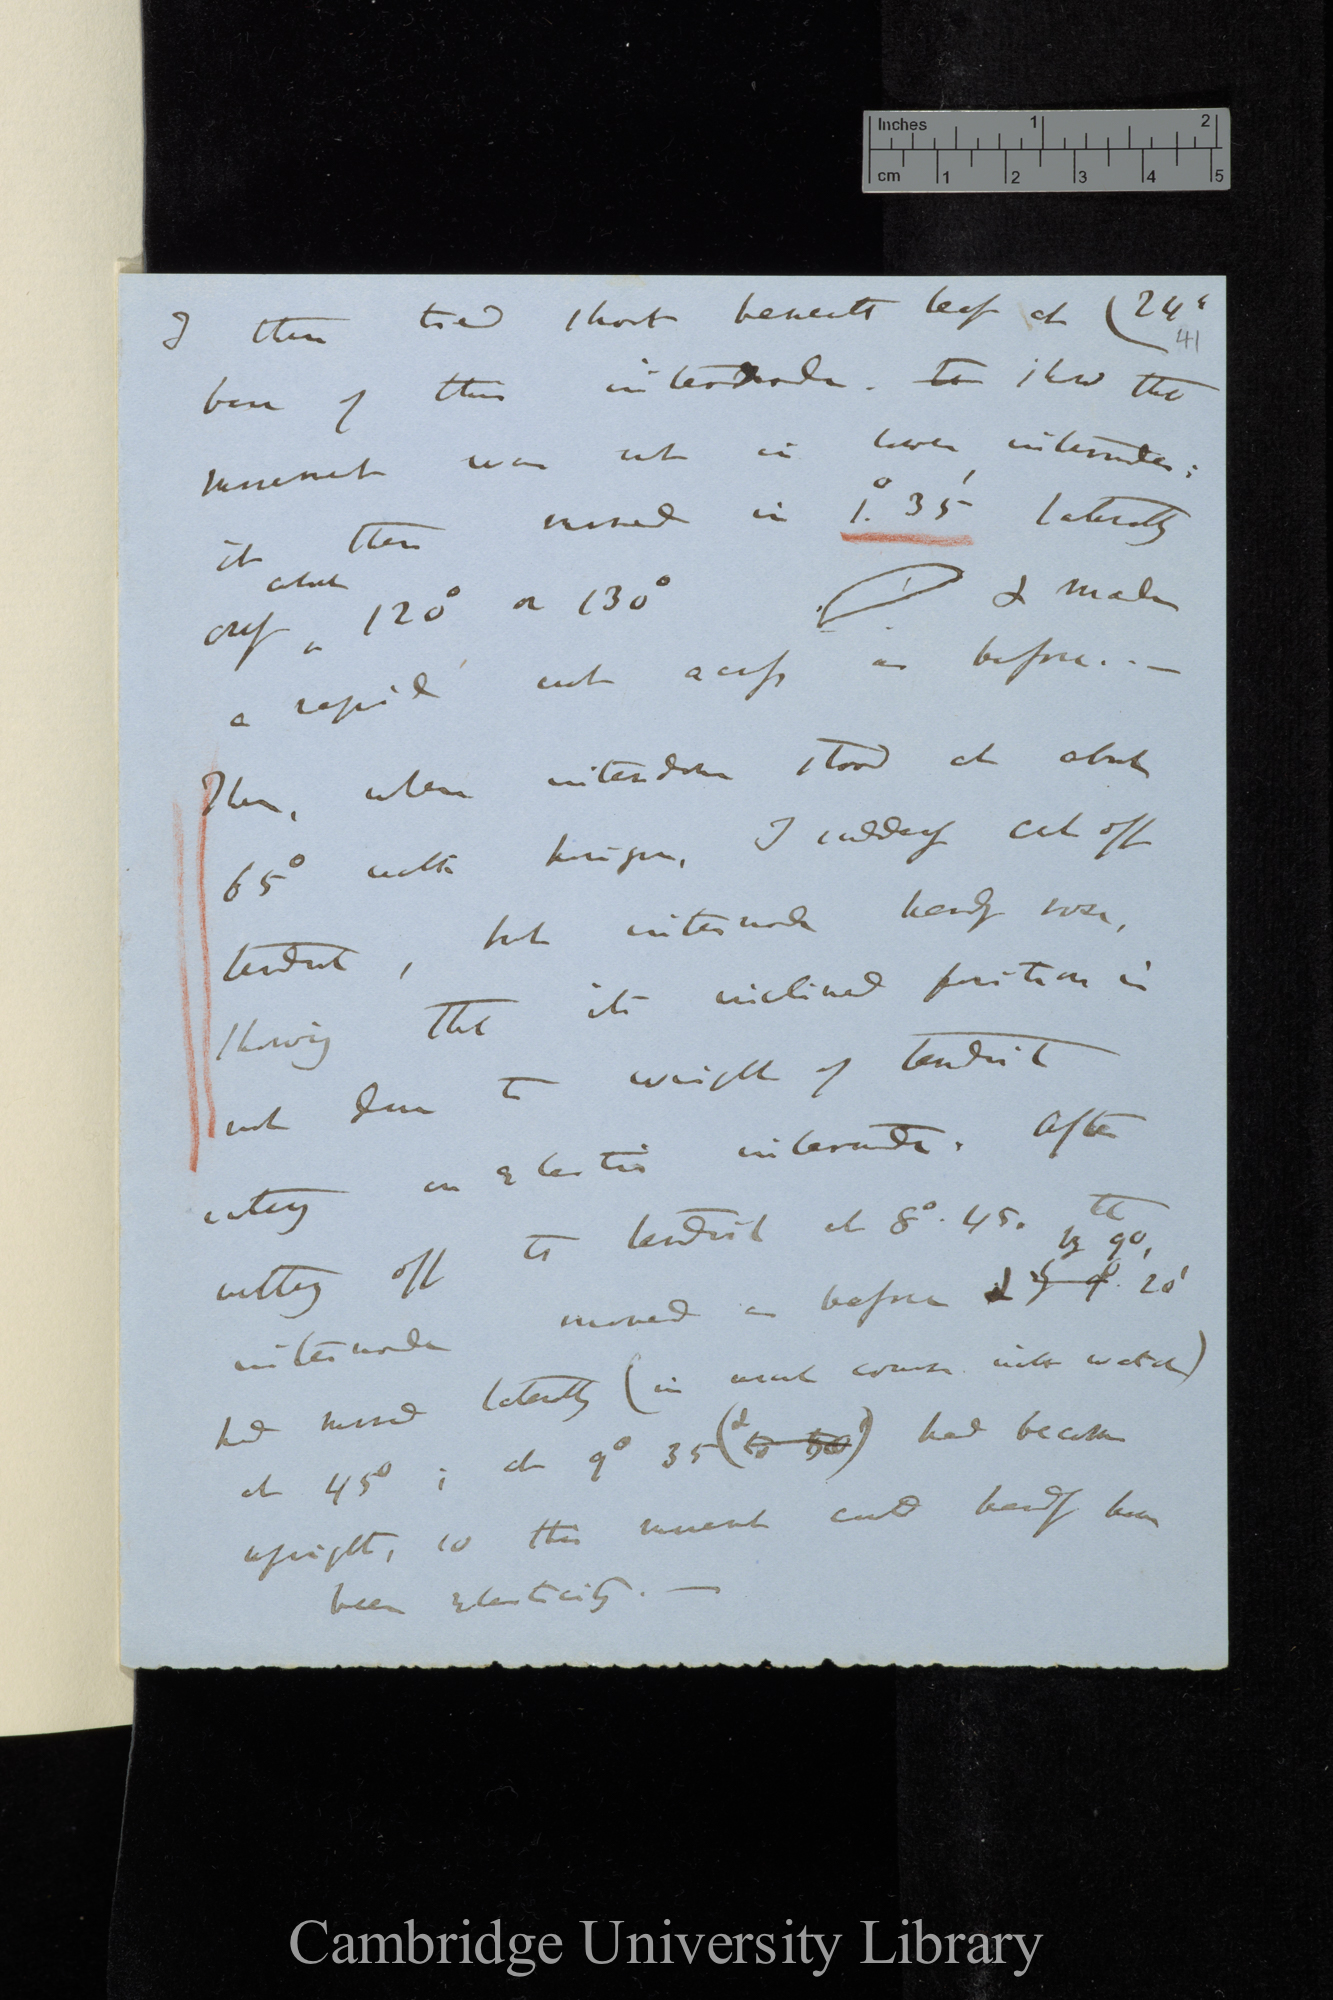 Inches 1 2
cm 1 2 3 4 5
I then tied shoot beneath leaf at (24
41
base of this internode. to show that
movement was not in lower internodes;
it then moved in 1.° 35' laterally
about
over 120° or 130° & made
a rapid across as before. —
Then, when internode stood at about
65° with horizon, I suddenly cut off
tendril, but internode hardly rose,
showing that its inclined position is
not due to weight of tendril
acting on elastic internode. After
cutting off the tendril at 8°. 45. the
by 9°,
internode moved as before & 20'
had moved laterally (in usual course with watch)
at 45°; at 9° 35 had become
upright, so this movement could hardly have
been elasticity. —
Cambridge University Library